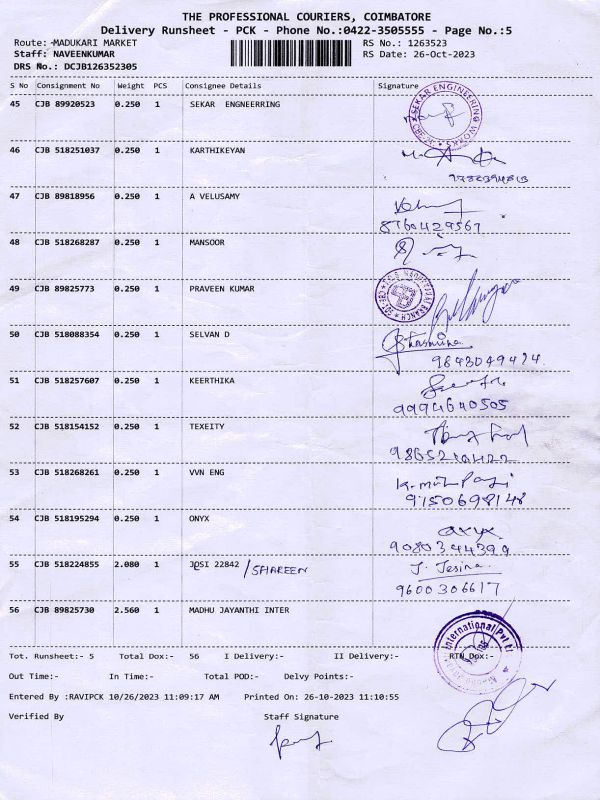 THE PROFESSIONAL COURIERS, COIMBATORE
Delivery Runsheet - PCK - Phone No.:0422-3505555 - Page No.:5
Route: -MADUKARI MARKET RS No.: 1263523
Staff: NAVEENKUMAR RS Date: 26-Oct-2023
DRS No.: DCJB126352305
S No Consignment No Weight PCS Consignee Details Signature
45 CJB 89920523 0.250 1 SEKAR ENGNEERRING
SEKAR ENGINEERING WORKS
46 CJB 518251037 0.250 1 KARTHIKEYAN
47 CJB 89818956 0.250 1 A VELUSAMY
8760429567
48 CJB 518268287 0.250 1 MANSOOR
49 CJB 89825773 0.250 1 PRAVEEN KUMAR
50 CJB 518088354 0.250 1 SELVAN D
9843049494
51 CJB 518257607 0.250 1 KEERTHIKA
9994640505
52 CJB 518154152 0.250 1 TEXEITY
9865210422
53 CJB 518268261 0.250 1 VVN ENG
9150698148
54 CJB 518195294 0.250 1 ONYX
9080344399
55 CJB 518224855 2.080 1 JOSI 22842 /SHAREEN
J. Jesina
9600306617
56 CJB 89825730 2.560 1 MADHU JAYANTHI INTER
International Pvt
Tot. Runsheet:- 5 Total Dox:- 56 I Delivery:- II Delivery:- RTN Dox:-
Out Time:- In Time:- Total POD:- Delvy Points:-
Entered By :RAVIPCK 10/26/2023 11:09:17 AM Printed On: 26-10-2023 11:10:55
Verified By Staff Signature